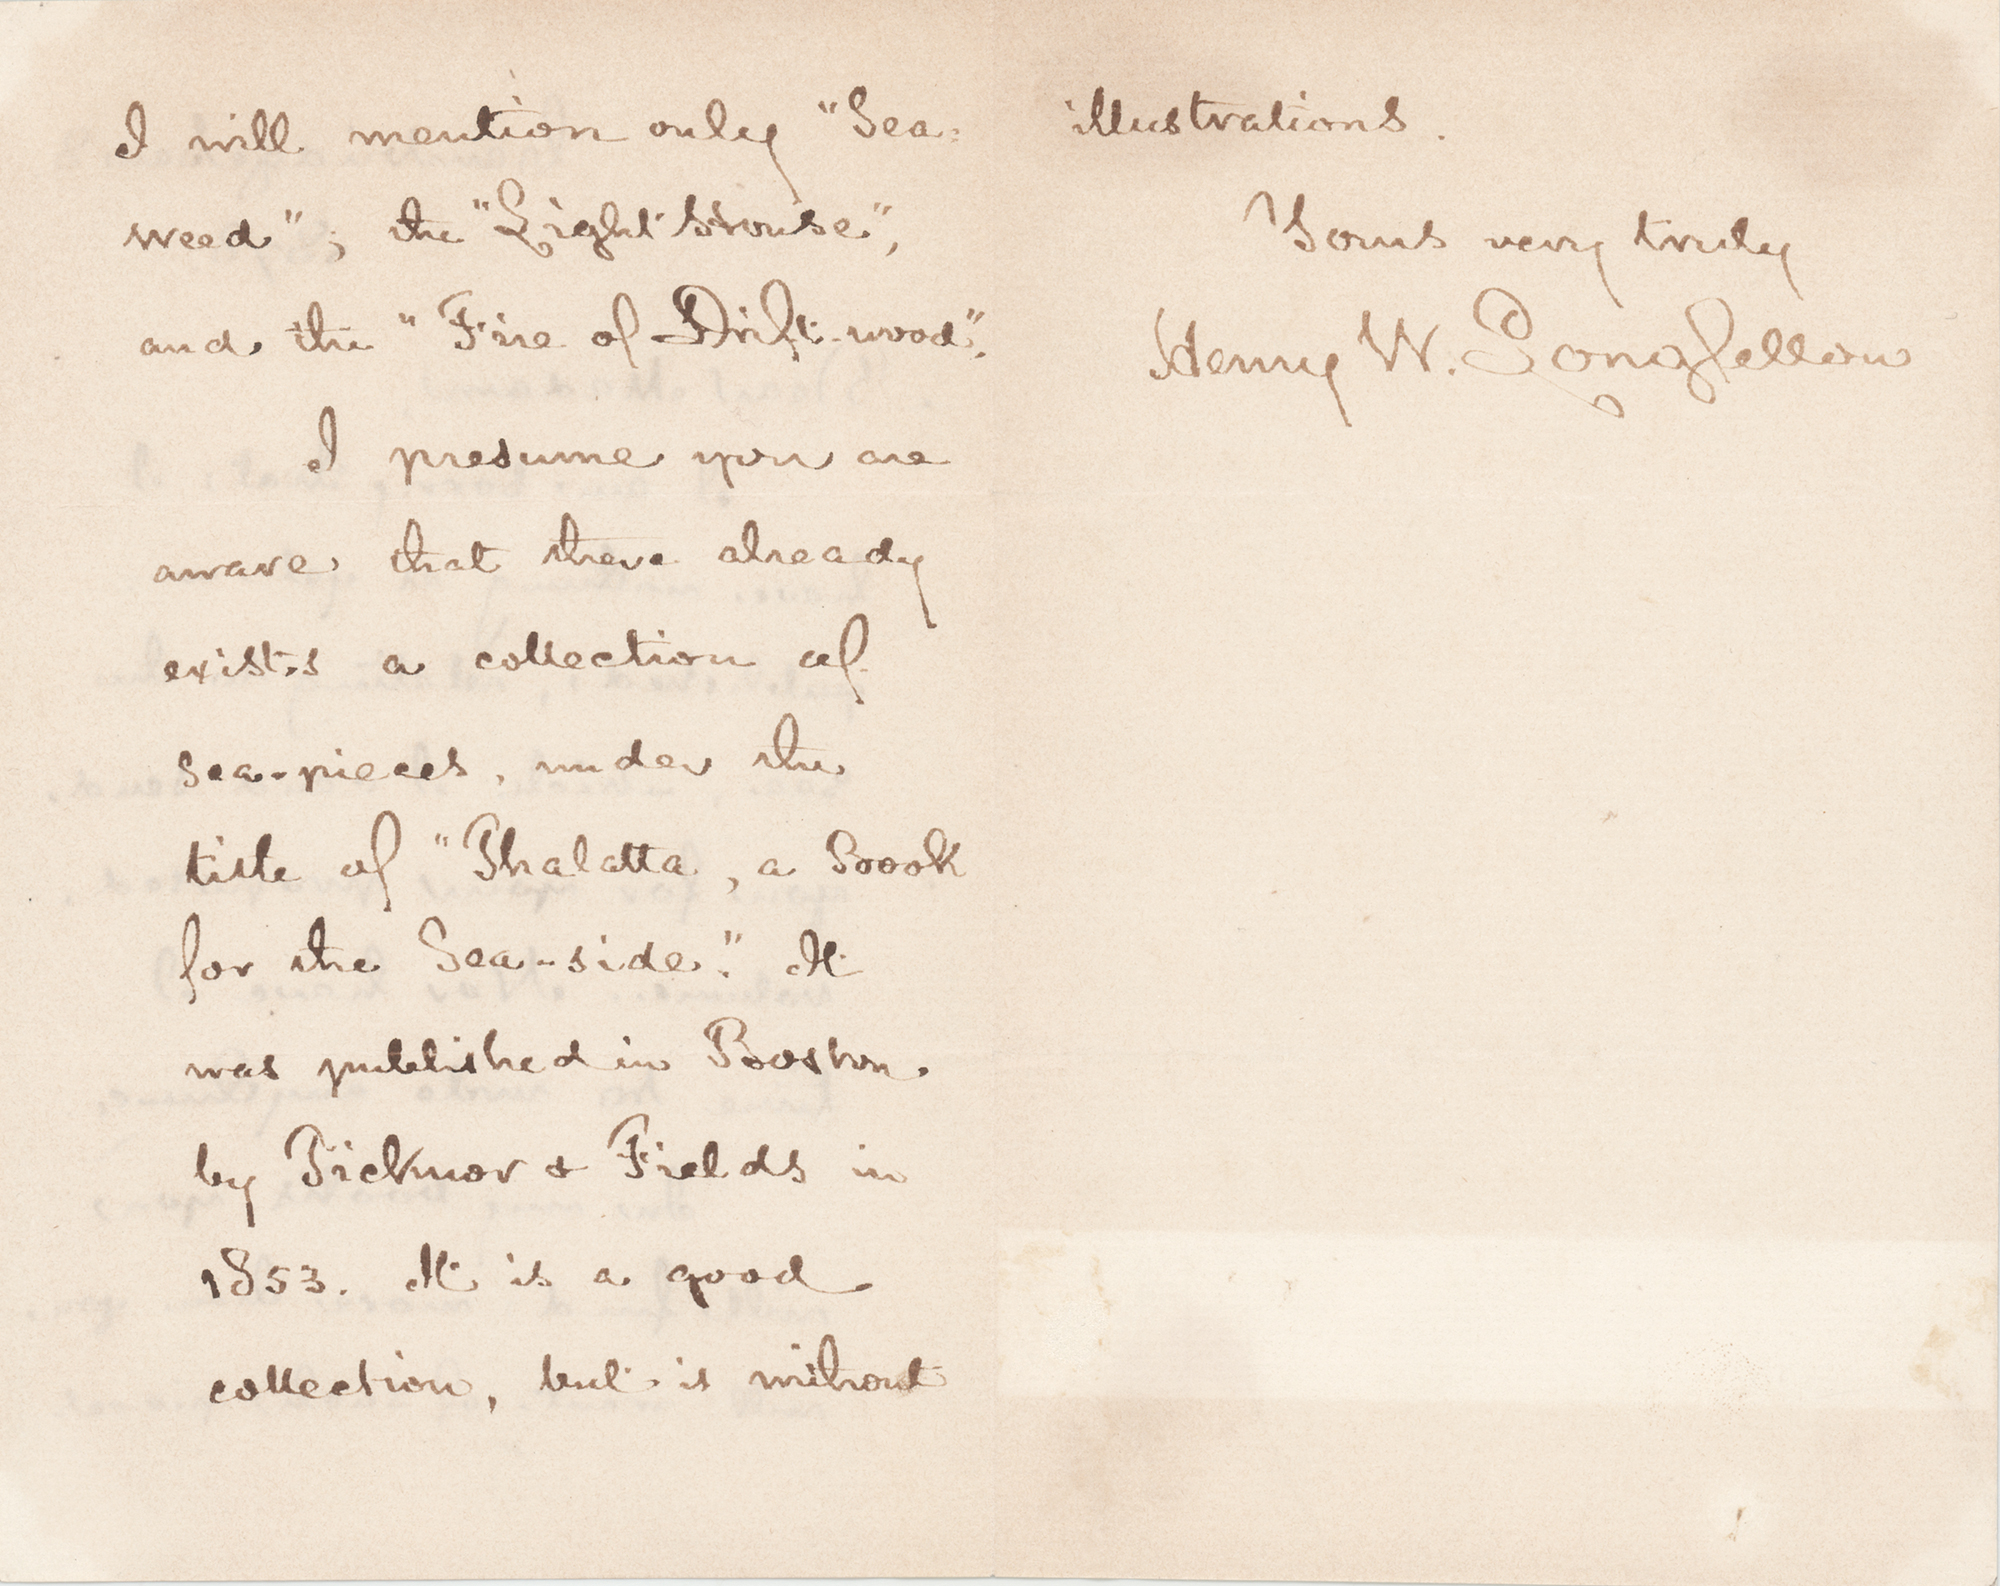 I will mention only "Sea-
weed"; the "Light House",
and the "Fire of Drift-wood".
I presume you are
aware that there already
exists a collection of
sea-pieces, under the
title of "Thalatta, a Book
for the Sea-side." It
was published in Boston
by Ticknor & Fields in
1853. It is a good
collection, but is without
illustrations.
Yours very truly
Henry W. Longfellow